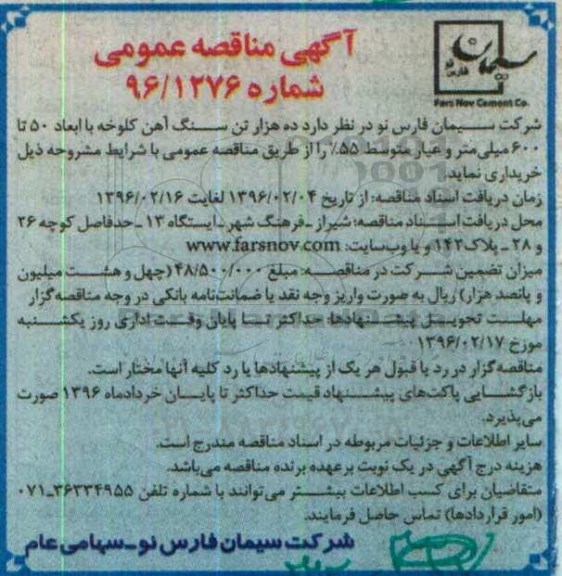 آگهی مناقصه عمومی
شماره ۹۶/۱۲۷۶
سیمان
فارس نو
Fars Nov Cement Co.
شرکت سیمان فارس نو در نظر دارد ده هزار تن سنگ آهن کلوخه با ابعاد ۵۰ تا
۶۰۰ میلی‌متر و عیار متوسط ۵۵٪ را از طریق مناقصه عمومی با شرایط مشروحه ذیل
خریداری نماید.
زمان دریافت اسناد مناقصه: از تاریخ ۱۳۹۶/۰۲/۰۴ لغایت ۱۳۹۶/۰۲/۱۶
محل دریافت اسناد مناقصه: شیراز ـ فرهنگ شهر ـ ایستگاه ۱۳ ـ حدفاصل کوچه ۲۶
و ۲۸ ـ پلاک ۱۴۳ و یا وب‌سایت: www.farsnov.com
میزان تضمین شرکت در مناقصه: مبلغ ۴۸/۵۰۰/۰۰۰ (چهل و هشت میلیون
و پانصد هزار) ریال به صورت واریز وجه نقد یا ضمانت‌نامه بانکی در وجه مناقصه‌گزار
مهلت تحویل پیشنهادها: حداکثر تا پایان وقت اداری روز یکشنبه
مورخ ۱۳۹۶/۰۲/۱۷
مناقصه‌گزار در رد یا قبول هر یک از پیشنهادها یا رد کلیه آنها مختار است.
بازگشایی پاکت‌های پیشنهاد قیمت حداکثر تا پایان خردادماه ۱۳۹۶ صورت
می‌پذیرد.
سایر اطلاعات و جزئیات مربوطه در اسناد مناقصه مندرج است.
هزینه درج آگهی در یک نوبت بر عهده برنده مناقصه می‌باشد.
متقاضیان برای کسب اطلاعات بیشتر می‌توانند با شماره تلفن ۳۶۳۳۴۹۵۵-۰۷۱
(امور قراردادها) تماس حاصل فرمایند.
شرکت سیمان فارس نو ـ سهامی عام